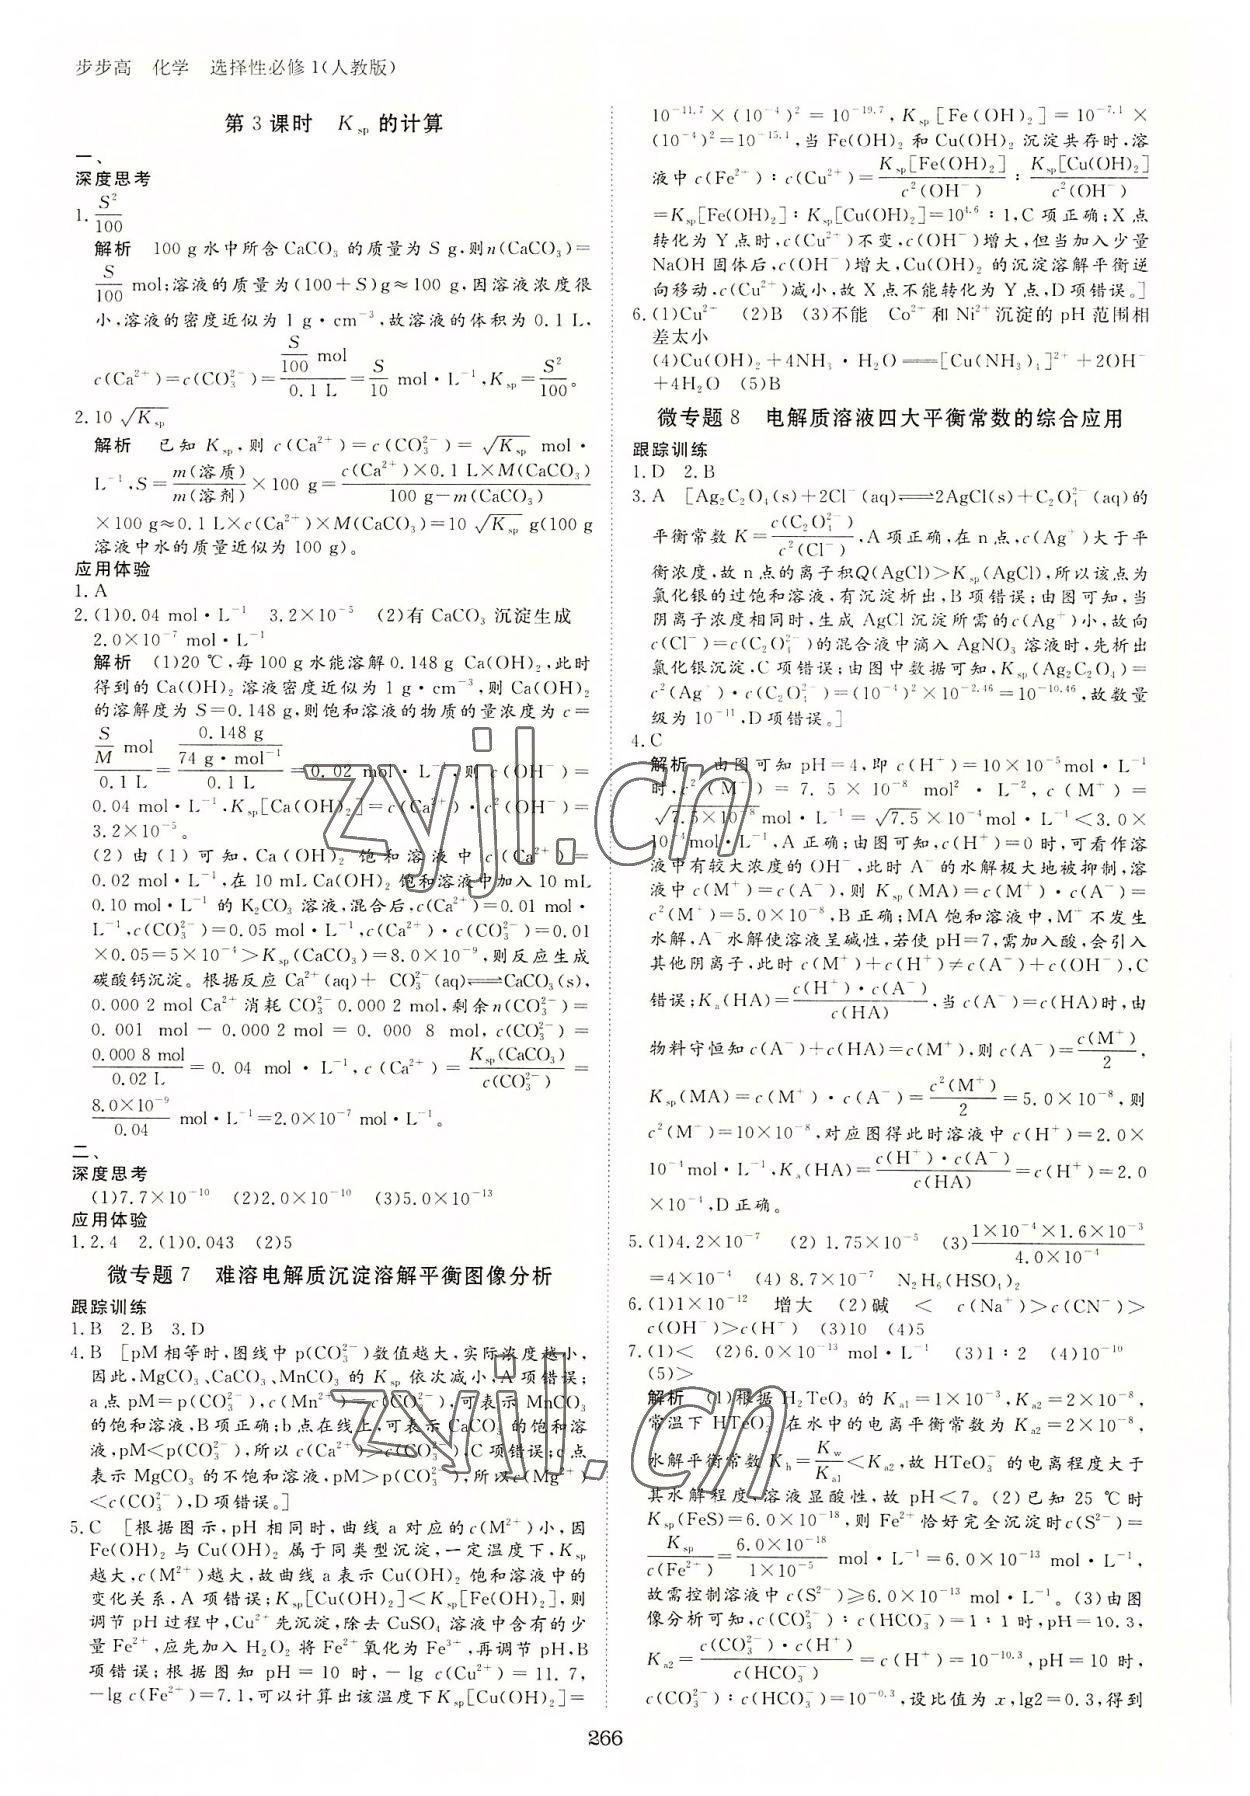 步步高 化学 选择性必修1(人教版)
第3课时 Ksp的计算
一、
深度思考
1. S²/100
解析 100 g水中所含CaCO₃的质量为S g,则n(CaCO₃)=
S/100 mol;溶液的质量为(100+S)g≈100 g,因溶液浓度很
小,溶液的密度近似为1 g·cm⁻³,故溶液的体积为0.1 L,
c(Ca²⁺)=c(CO₃²⁻)=(S/100 mol)/(0.1 L)=S/10 mol·L⁻¹,Ksp=S²/100。
2. 10√Ksp
解析 已知Ksp,则c(Ca²⁺)=c(CO₃²⁻)=√Ksp mol·
L⁻¹,S=m(溶质)/m(溶剂)×100 g=(c(Ca²⁺)×0.1 L×M(CaCO₃))/(100 g-m(CaCO₃))
×100 g≈0.1 L×c(Ca²⁺)×M(CaCO₃)=10√Ksp g(100 g
溶液中水的质量近似为100 g)。
应用体验
1.A
2.(1)0.04 mol·L⁻¹ 3.2×10⁻⁵ (2)有CaCO₃沉淀生成
2.0×10⁻⁷ mol·L⁻¹
解析 (1)20 ℃,每100 g水能溶解0.148 g Ca(OH)₂,此时
得到的Ca(OH)₂溶液密度近似为1 g·cm⁻³,则Ca(OH)₂
的溶解度为S=0.148 g,则饱和溶液的物质的量浓度为c=
(S/M mol)/(0.1 L)=(0.148 g/74 g·mol⁻¹)/(0.1 L)=0.02 mol·L⁻¹,则c(OH⁻)=
0.04 mol·L⁻¹,Ksp[Ca(OH)₂]=c(Ca²⁺)·c²(OH⁻)=
3.2×10⁻⁵。
(2)由(1)可知,Ca(OH)₂饱和溶液中c(Ca²⁺)=
0.02 mol·L⁻¹,在10 mL Ca(OH)₂饱和溶液中加入10 mL
0.10 mol·L⁻¹的K₂CO₃溶液,混合后,c(Ca²⁺)=0.01 mol·
L⁻¹,c(CO₃²⁻)=0.05 mol·L⁻¹,c(Ca²⁺)·c(CO₃²⁻)=0.01
×0.05=5×10⁻⁴>Ksp(CaCO₃)=8.0×10⁻⁹,则反应生成
碳酸钙沉淀。根据反应Ca²⁺(aq)+CO₃²⁻(aq)⇌CaCO₃(s),
0.000 2 mol Ca²⁺消耗CO₃²⁻ 0.000 2 mol,剩余n(CO₃²⁻)=
0.001 mol-0.000 2 mol=0.000 8 mol,c(CO₃²⁻)=
0.000 8 mol/0.02 L=0.04 mol·L⁻¹,c(Ca²⁺)=Ksp(CaCO₃)/c(CO₃²⁻)=
8.0×10⁻⁹/0.04 mol·L⁻¹=2.0×10⁻⁷ mol·L⁻¹。
二、
深度思考
(1)7.7×10⁻¹⁰ (2)2.0×10⁻¹⁰ (3)5.0×10⁻¹³
应用体验
1.2.4 2.(1)0.043 (2)5
微专题7 难溶电解质沉淀溶解平衡图像分析
跟踪训练
1.B 2.B 3.D
4.B [pM相等时,图线中p(CO₃²⁻)数值越大,实际浓度越小,
因此,MgCO₃、CaCO₃、MnCO₃的Ksp依次减小,A项错误;
a点pM=p(CO₃²⁻),c(Mn²⁺)=c(CO₃²⁻),可表示MnCO₃
的饱和溶液,B项正确;b点在线上,可表示CaCO₃的饱和溶
液,pM<p(CO₃²⁻),所以c(Ca²⁺)>c(CO₃²⁻),C项错误;c点
表示MgCO₃的不饱和溶液,pM>p(CO₃²⁻),所以c(Mg²⁺)
<c(CO₃²⁻),D项错误。]
5.C [根据图示,pH相同时,曲线a对应的c(M²⁺)小,因
Fe(OH)₂与Cu(OH)₂属于同类型沉淀,一定温度下,Ksp
越大,c(M²⁺)越大,故曲线a表示Cu(OH)₂饱和溶液中的
变化关系,A项错误;Ksp[Cu(OH)₂]<Ksp[Fe(OH)₂],则
调节pH过程中,Cu²⁺先沉淀,除去CuSO₄溶液中含有的少
量Fe²⁺,应先加入H₂O₂将Fe²⁺氧化为Fe³⁺,再调节pH,B
项错误;根据图像pH=10时,-lg c(Cu²⁺)=11.7,
-lg c(Fe²⁺)=7.1,可以计算出该温度下Ksp[Cu(OH)₂]=
10⁻¹¹·⁷×(10⁻⁴)²=10⁻¹⁹·⁷,Ksp[Fe(OH)₂]=10⁻⁷·¹×
(10⁻⁴)²=10⁻¹⁵·¹,当Fe(OH)₂和Cu(OH)₂沉淀共存时,溶
液中c(Fe²⁺)∶c(Cu²⁺)=Ksp[Fe(OH)₂]/c²(OH⁻)∶Ksp[Cu(OH)₂]/c²(OH⁻)
=Ksp[Fe(OH)₂]∶Ksp[Cu(OH)₂]=10⁴·⁶∶1,C项正确;X点
转化为Y点时,c(Cu²⁺)不变,c(OH⁻)增大,但当加入少量
NaOH固体后,c(OH⁻)增大,Cu(OH)₂的沉淀溶解平衡逆
向移动,c(Cu²⁺)减小,故X点不能转化为Y点,D项错误。]
6.(1)Cu²⁺ (2)B (3)不能 Co²⁺和Ni²⁺沉淀的pH范围相
差太小
(4)Cu(OH)₂+4NH₃·H₂O═[Cu(NH₃)₄]²⁺+2OH⁻
+4H₂O (5)B
微专题8 电解质溶液四大平衡常数的综合应用
跟踪训练
1.D 2.B
3.A [Ag₂C₂O₄(s)+2Cl⁻(aq)⇌2AgCl(s)+C₂O₄²⁻(aq)的
平衡常数K=c(C₂O₄²⁻)/c²(Cl⁻),A项正确,在n点,c(Ag⁺)大于平
衡浓度,故n点的离子积Q(AgCl)>Ksp(AgCl),所以该点为
氯化银的过饱和溶液,有沉淀析出,B项错误;由图可知,当
阴离子浓度相同时,生成AgCl沉淀所需的c(Ag⁺)小,故向
c(Cl⁻)=c(C₂O₄²⁻)的混合液中滴入AgNO₃溶液时,先析出
氯化银沉淀,C项错误;由图中数据可知,Ksp(Ag₂C₂O₄)=
c²(Ag⁺)·c(C₂O₄²⁻)=(10⁻⁴)²×10⁻²·⁴⁶=10⁻¹⁰·⁴⁶,故数量
级为10⁻¹¹,D项错误。]
4.C
解析 由图可知pH=4,即c(H⁺)=10×10⁻⁵mol·L⁻¹
时,c²(M⁺)=7.5×10⁻⁸ mol²·L⁻²,c(M⁺)=
√(7.5×10⁻⁸) mol·L⁻¹=√7.5×10⁻⁴mol·L⁻¹<3.0×
10⁻⁴mol·L⁻¹,A正确;由图可知,c(H⁺)=0时,可看作溶
液中有较大浓度的OH⁻,此时A⁻的水解极大地被抑制,溶
液中c(M⁺)=c(A⁻),则Ksp(MA)=c(M⁺)·c(A⁻)=
c²(M⁺)=5.0×10⁻⁸,B正确;MA饱和溶液中,M⁺不发生
水解,A⁻水解使溶液呈碱性,若使pH=7,需加入酸,会引入
其他阴离子,此时c(M⁺)+c(H⁺)≠c(A⁻)+c(OH⁻),C
错误;Ka(HA)=c(H⁺)·c(A⁻)/c(HA),当c(A⁻)=c(HA)时,由
物料守恒知c(A⁻)+c(HA)=c(M⁺),则c(A⁻)=c(M⁺)/2,
Ksp(MA)=c(M⁺)·c(A⁻)=c²(M⁺)/2=5.0×10⁻⁸,则
c²(M⁺)=10×10⁻⁸,对应图得此时溶液中c(H⁺)=2.0×
10⁻⁴mol·L⁻¹,Ka(HA)=c(H⁺)·c(A⁻)/c(HA)=c(H⁺)=2.0
×10⁻⁴,D正确。
5.(1)4.2×10⁻⁷ (2)1.75×10⁻⁵ (3)(1×10⁻⁴×1.6×10⁻³)/(4.0×10⁻⁴) (4)8.7×10⁻⁷ N₂H₆(HSO₄)₂
6.(1)1×10⁻¹² 增大 (2)碱 < c(Na⁺)>c(CN⁻)>
c(OH⁻)>c(H⁺) (3)10 (4)5
7.(1)< (2)6.0×10⁻¹³ mol·L⁻¹ (3)1∶2 (4)10⁻¹⁰
(5)>
解析 (1)根据H₂TeO₃的Ka1=1×10⁻³,Ka2=2×10⁻⁸,
常温下HTeO₃⁻在水中的电离平衡常数为Ka2=2×10⁻⁸,
水解平衡常数Kh=Kw/Ka1<Ka2,故HTeO₃⁻的电离程度大于
其水解程度,溶液显酸性,故pH<7。(2)已知25 ℃时
Ksp(FeS)=6.0×10⁻¹⁸,则Fe²⁺恰好完全沉淀时c(S²⁻)=
Ksp/c(Fe²⁺)=6.0×10⁻¹⁸/1×10⁻⁵ mol·L⁻¹=6.0×10⁻¹³ mol·L⁻¹,
故需控制溶液中c(S²⁻)≥6.0×10⁻¹³ mol·L⁻¹。(3)由图
像分析可知,c(CO₃²⁻)∶c(HCO₃⁻)=1∶1时,pH=10.3,
Ka2=c(CO₃²⁻)·c(H⁺)/c(HCO₃⁻)=c(H⁺)=10⁻¹⁰·³,pH=10时,
c(CO₃²⁻)∶c(HCO₃⁻)=10⁻⁰·³,设比值为x,lg2=0.3,得到
266
zyjl.cn
zyjl.cn